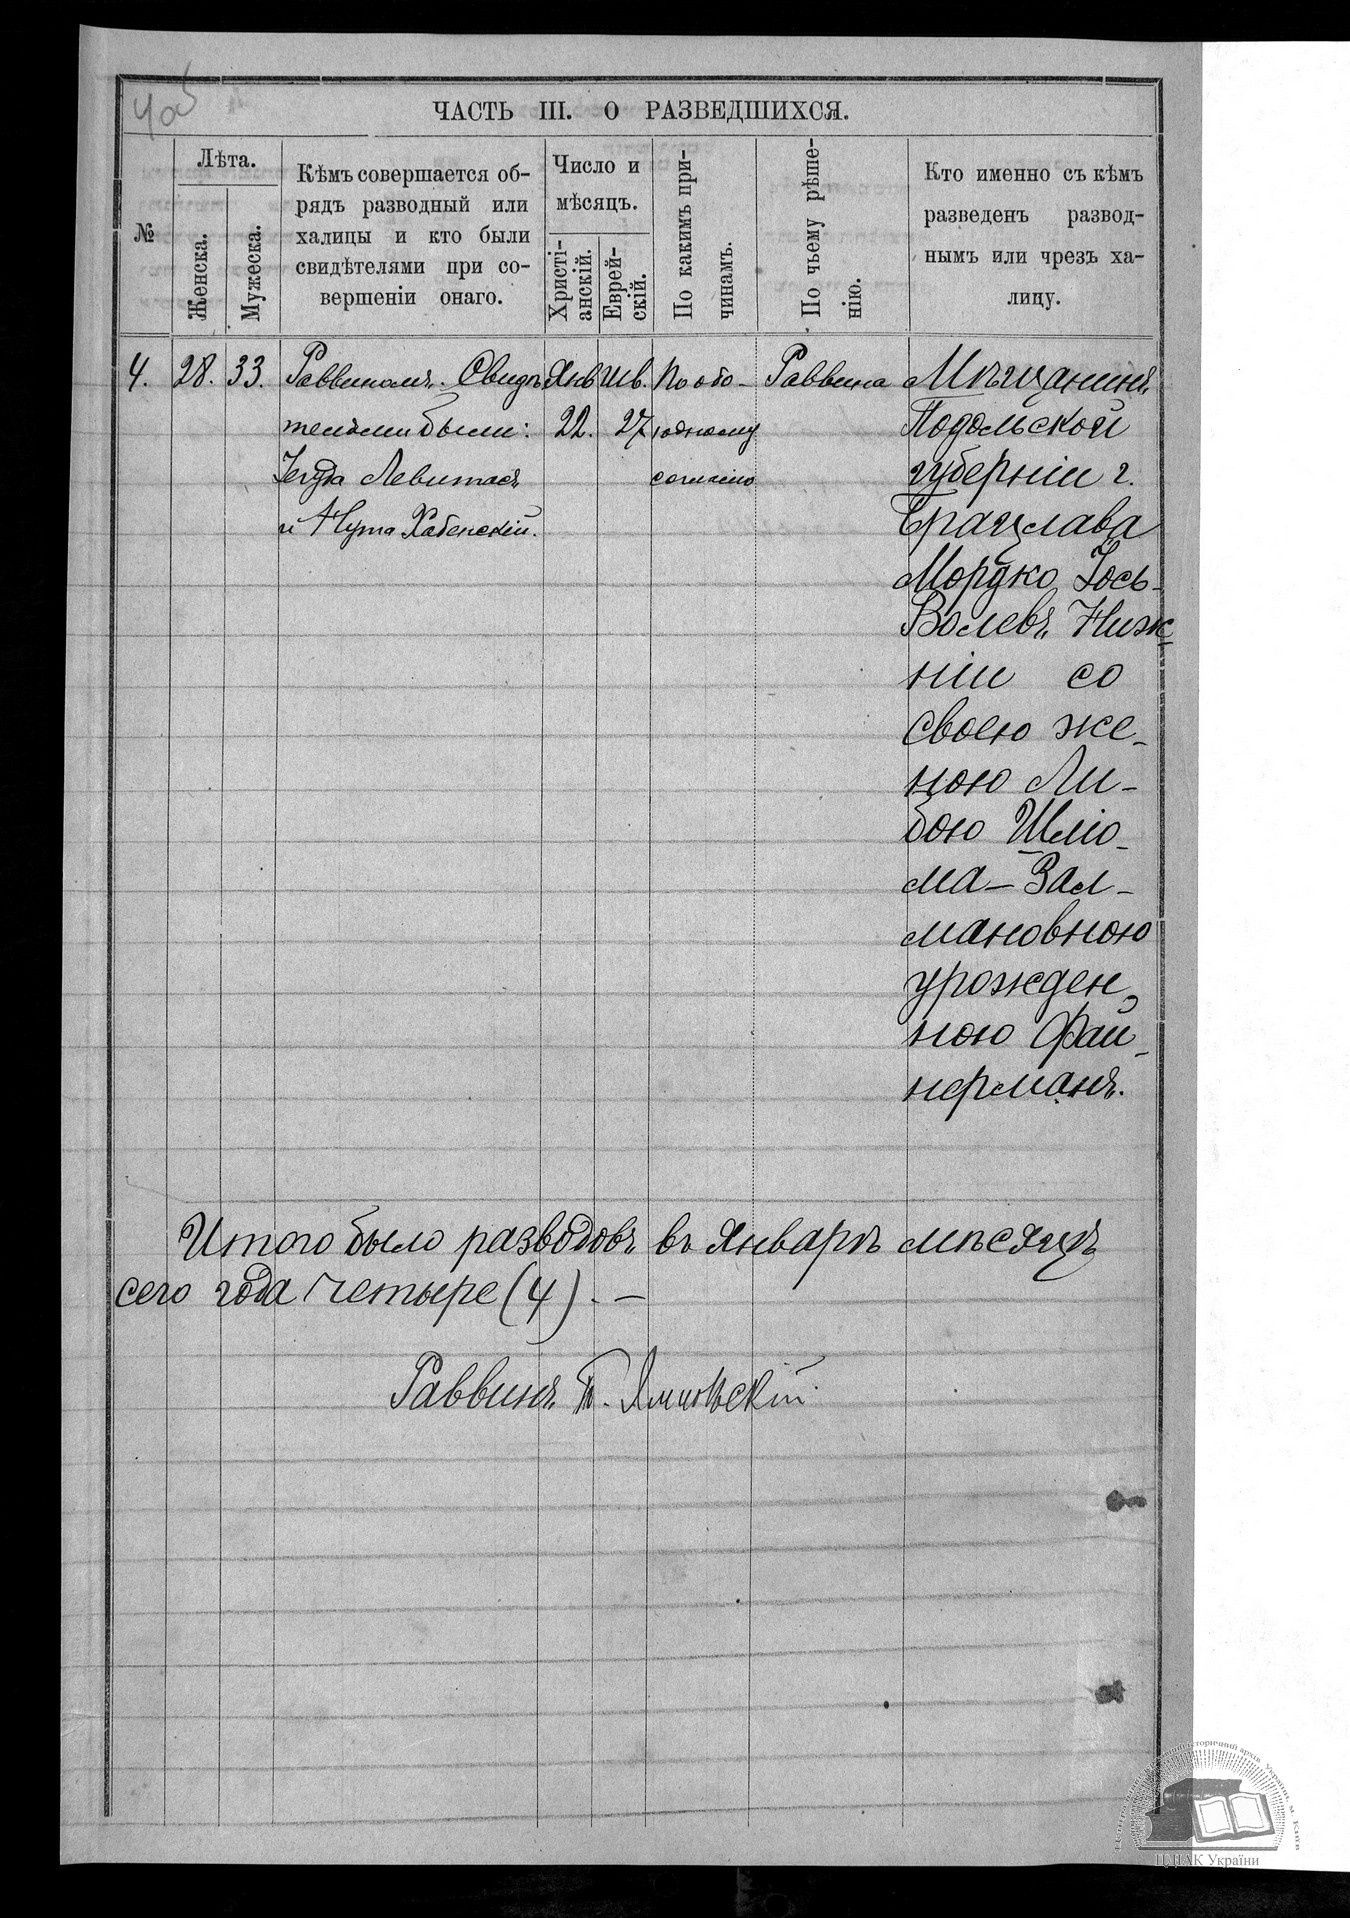 405
ЧАСТЬ III. О РАЗВЕДШИХСЯ.
№
Лѣта.
Женска.
Мужеска.
Кѣмъ совершается об-
рядъ разводный или
халицы и кто были
свидѣтелями при со-
вершеніи онаго.
Число и
мѣсяцъ.
Христі-
анскій.
Еврей-
скій.
По какимъ при-
чинамъ.
По чьему рѣше-
нію.
Кто именно съ кѣмъ
разведенъ развод-
нымъ или чрезъ ха-
лицу.
4.
28.
33.
Раввиномъ. Свидѣ
телями были:
Іегуда Левитасъ
и Нута Хабенскій.
Янв
22.
Шв.
27
По обо-
юдному
согласію
Раввина
Мѣщанинъ
Подольской
губерніи г.
Брацлава
Мордко Іось-
Волевъ Ниж
ній со
своею же-
ною Ли-
бою Шліо-
ма-Зал-
мановною
урожден-
ною Фай-
нерманъ.
Итого было разводовъ въ Январѣ мѣсяцѣ
сего года четыре (4). —
Раввинъ
ЦДІАК України